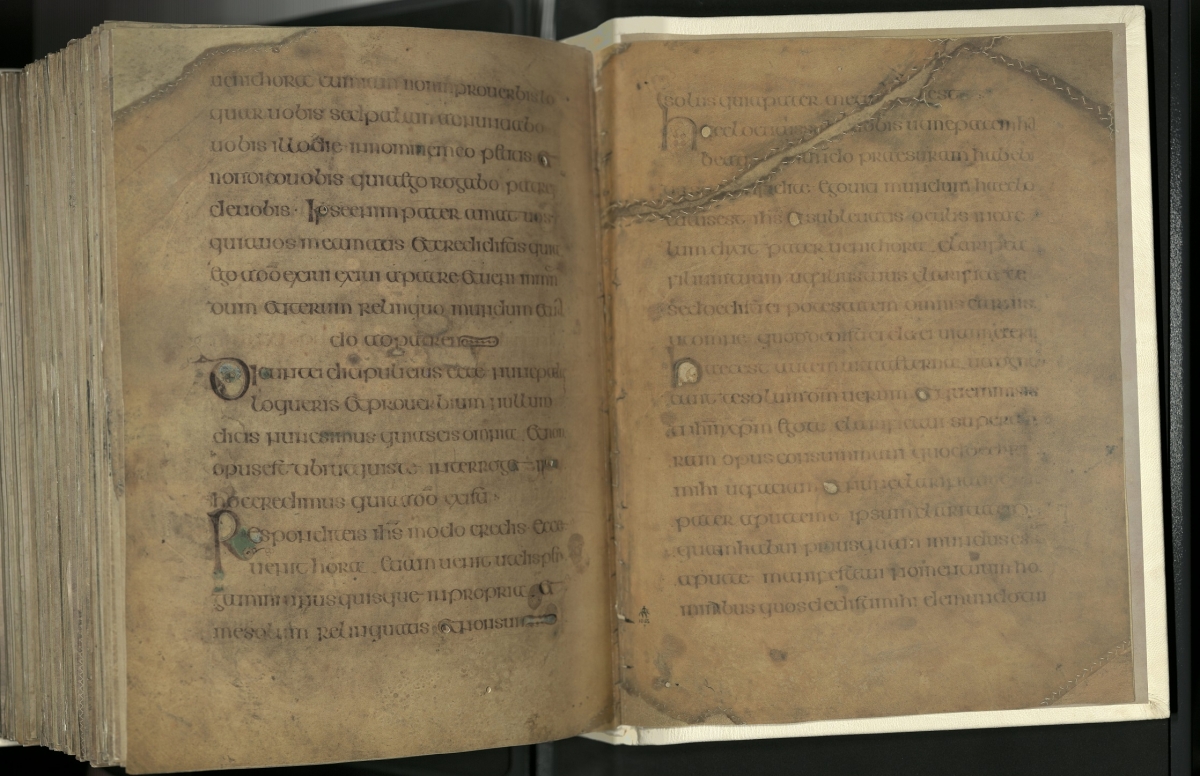 uenit hora cum iam non in prouerbis lo
quar uobis sed palam adnuntiabo
uobis illo die in nomine meo petitis et
non dico uobis quia ego rogabo patrē
de uobis · Ipse enim pater amat uos
quia uos me amatis et credidistis quia
ego a dō exiui exiui a patre et ueni in mun
dum et iterum relinquo mundum et ua
do ad patrem
Dicunt ei discipuli eius ecce nunc palā
loqueris et prouerbium nullum
dicis nunc scimus quia scis omnia et non
opus est tibi ut quis te interroget in
hoc credimus quia a dō existi
Respondit eis ihs modo creditis ecce
uenit hora et iam uenit ut disper
gamini unusquisque in propria et
me solum relinquatis et non sum
solus quia pater mecum est
haec locutus sum uobis ut in me pacem ha
beatis in mundo praesuram habebi
confidite ego uici mundum haec lo
cutus est ihs et subleuatis oculis in cae
lum dixit pater uenit hora clarifica
filium tuum ut filius tuus clarificet te
sicut dedisti ei potestatem omnis carnis
ut omne quod dedisti ei det eis uitam aetern
haec est autem uita aeterna ut cognos
cant te solum dm uerum et quem misis
ti ihm xpm ego te clarificaui super ter
ram opus consummaui quod dedisti
mihi ut faciam et nunc clarifica me
pater apud temet ipsum claritate
quam habui prius quam mundus es
apud te manifestaui nomen tuum ho
minibus quos dedisti mihi de mundo tui